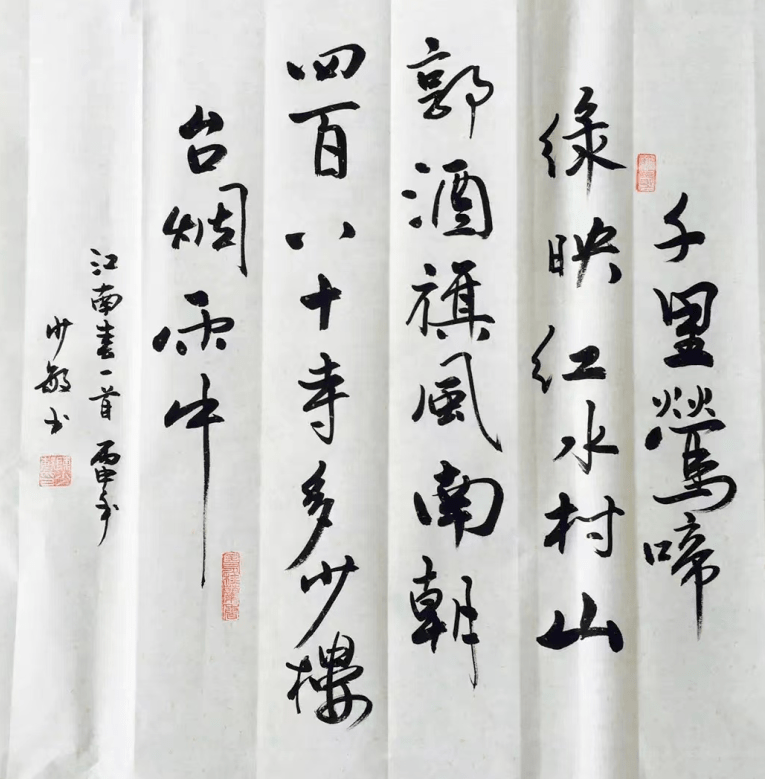 千里鶯啼
綠映红水村山
郭酒旗風南朝
四百八十寺多少樓
台烟雨中
江南春一首 丙申年
少敏书